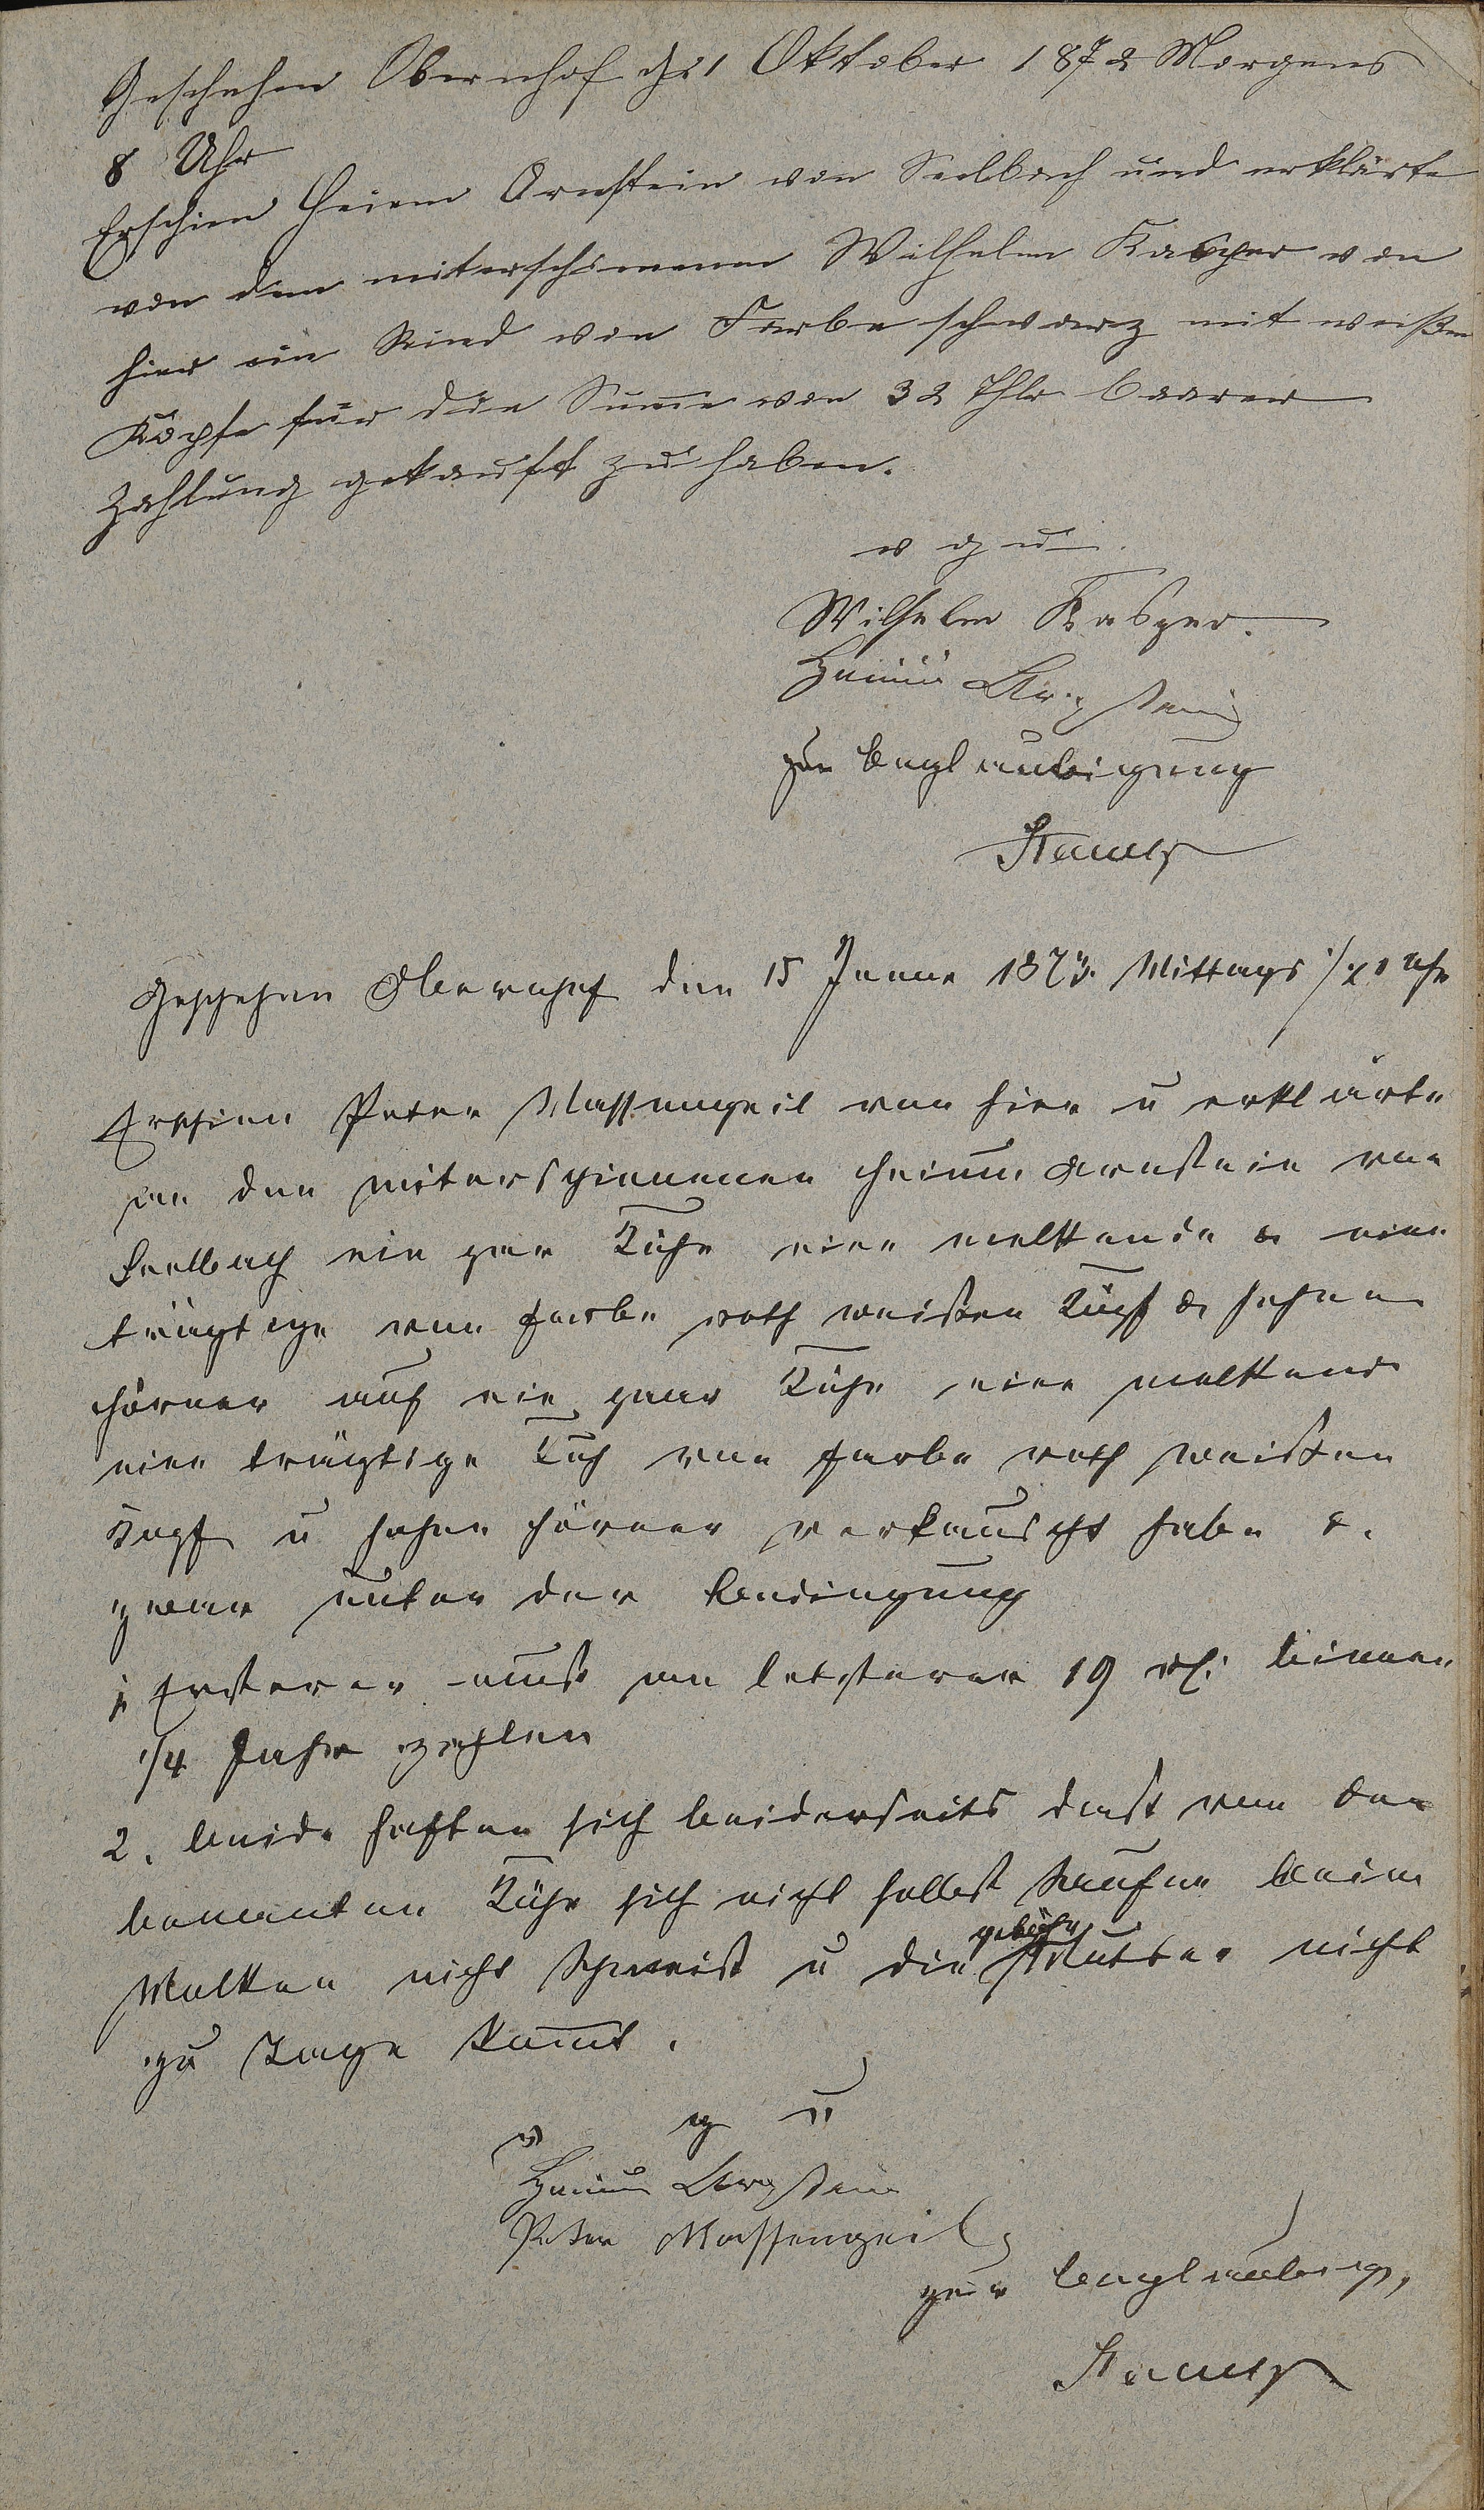 Geschehen Obernhof d 1 Oktober 1872 Morgens
8 Uhr
Erschien Heium Arnstein von Seelbach und erklärte
von dem miterschienenen Wilhelm Kasper von
hier ein Rind von Farbe schwarz mit weißem
Kopfe für die Sume von 32 Thlr baarer
Zahlung gekauft zu haben.
v g u.
Wilhelm Kasper.
Heium Arnstein
zur Beglaubigung
Geschehen Obernhof den 15 Januar 1873. Mittags 1/2 1 Uhr
Erschien Peter Massengeil von hier u erklärte
an den miterschienenen Heium Arnstein von
Seelbach ein par Kühe eine melkende & eine
trägtige von Farbe roth weißen Kopf & hohe
Hörner auf ein paar Kühe eine melkende
eine trägtige Kuh von Farbe roth weißen
Kopf u hohe Hörner vertauscht habe &
zwar unter der Bedingung
1 Ersterer muß an letzterer 19 rl: binnen
1/4 Jahr zahlen
2. Beide haften sich beiderseits daß von den
benannten Kühe sich nicht selbst saufen beim
Melken nicht schmeist u die gebähr Mutter nicht
zu Tage komt.
v g u
Heium Arnstein
Peter Massengeil
zur Beglaubig,